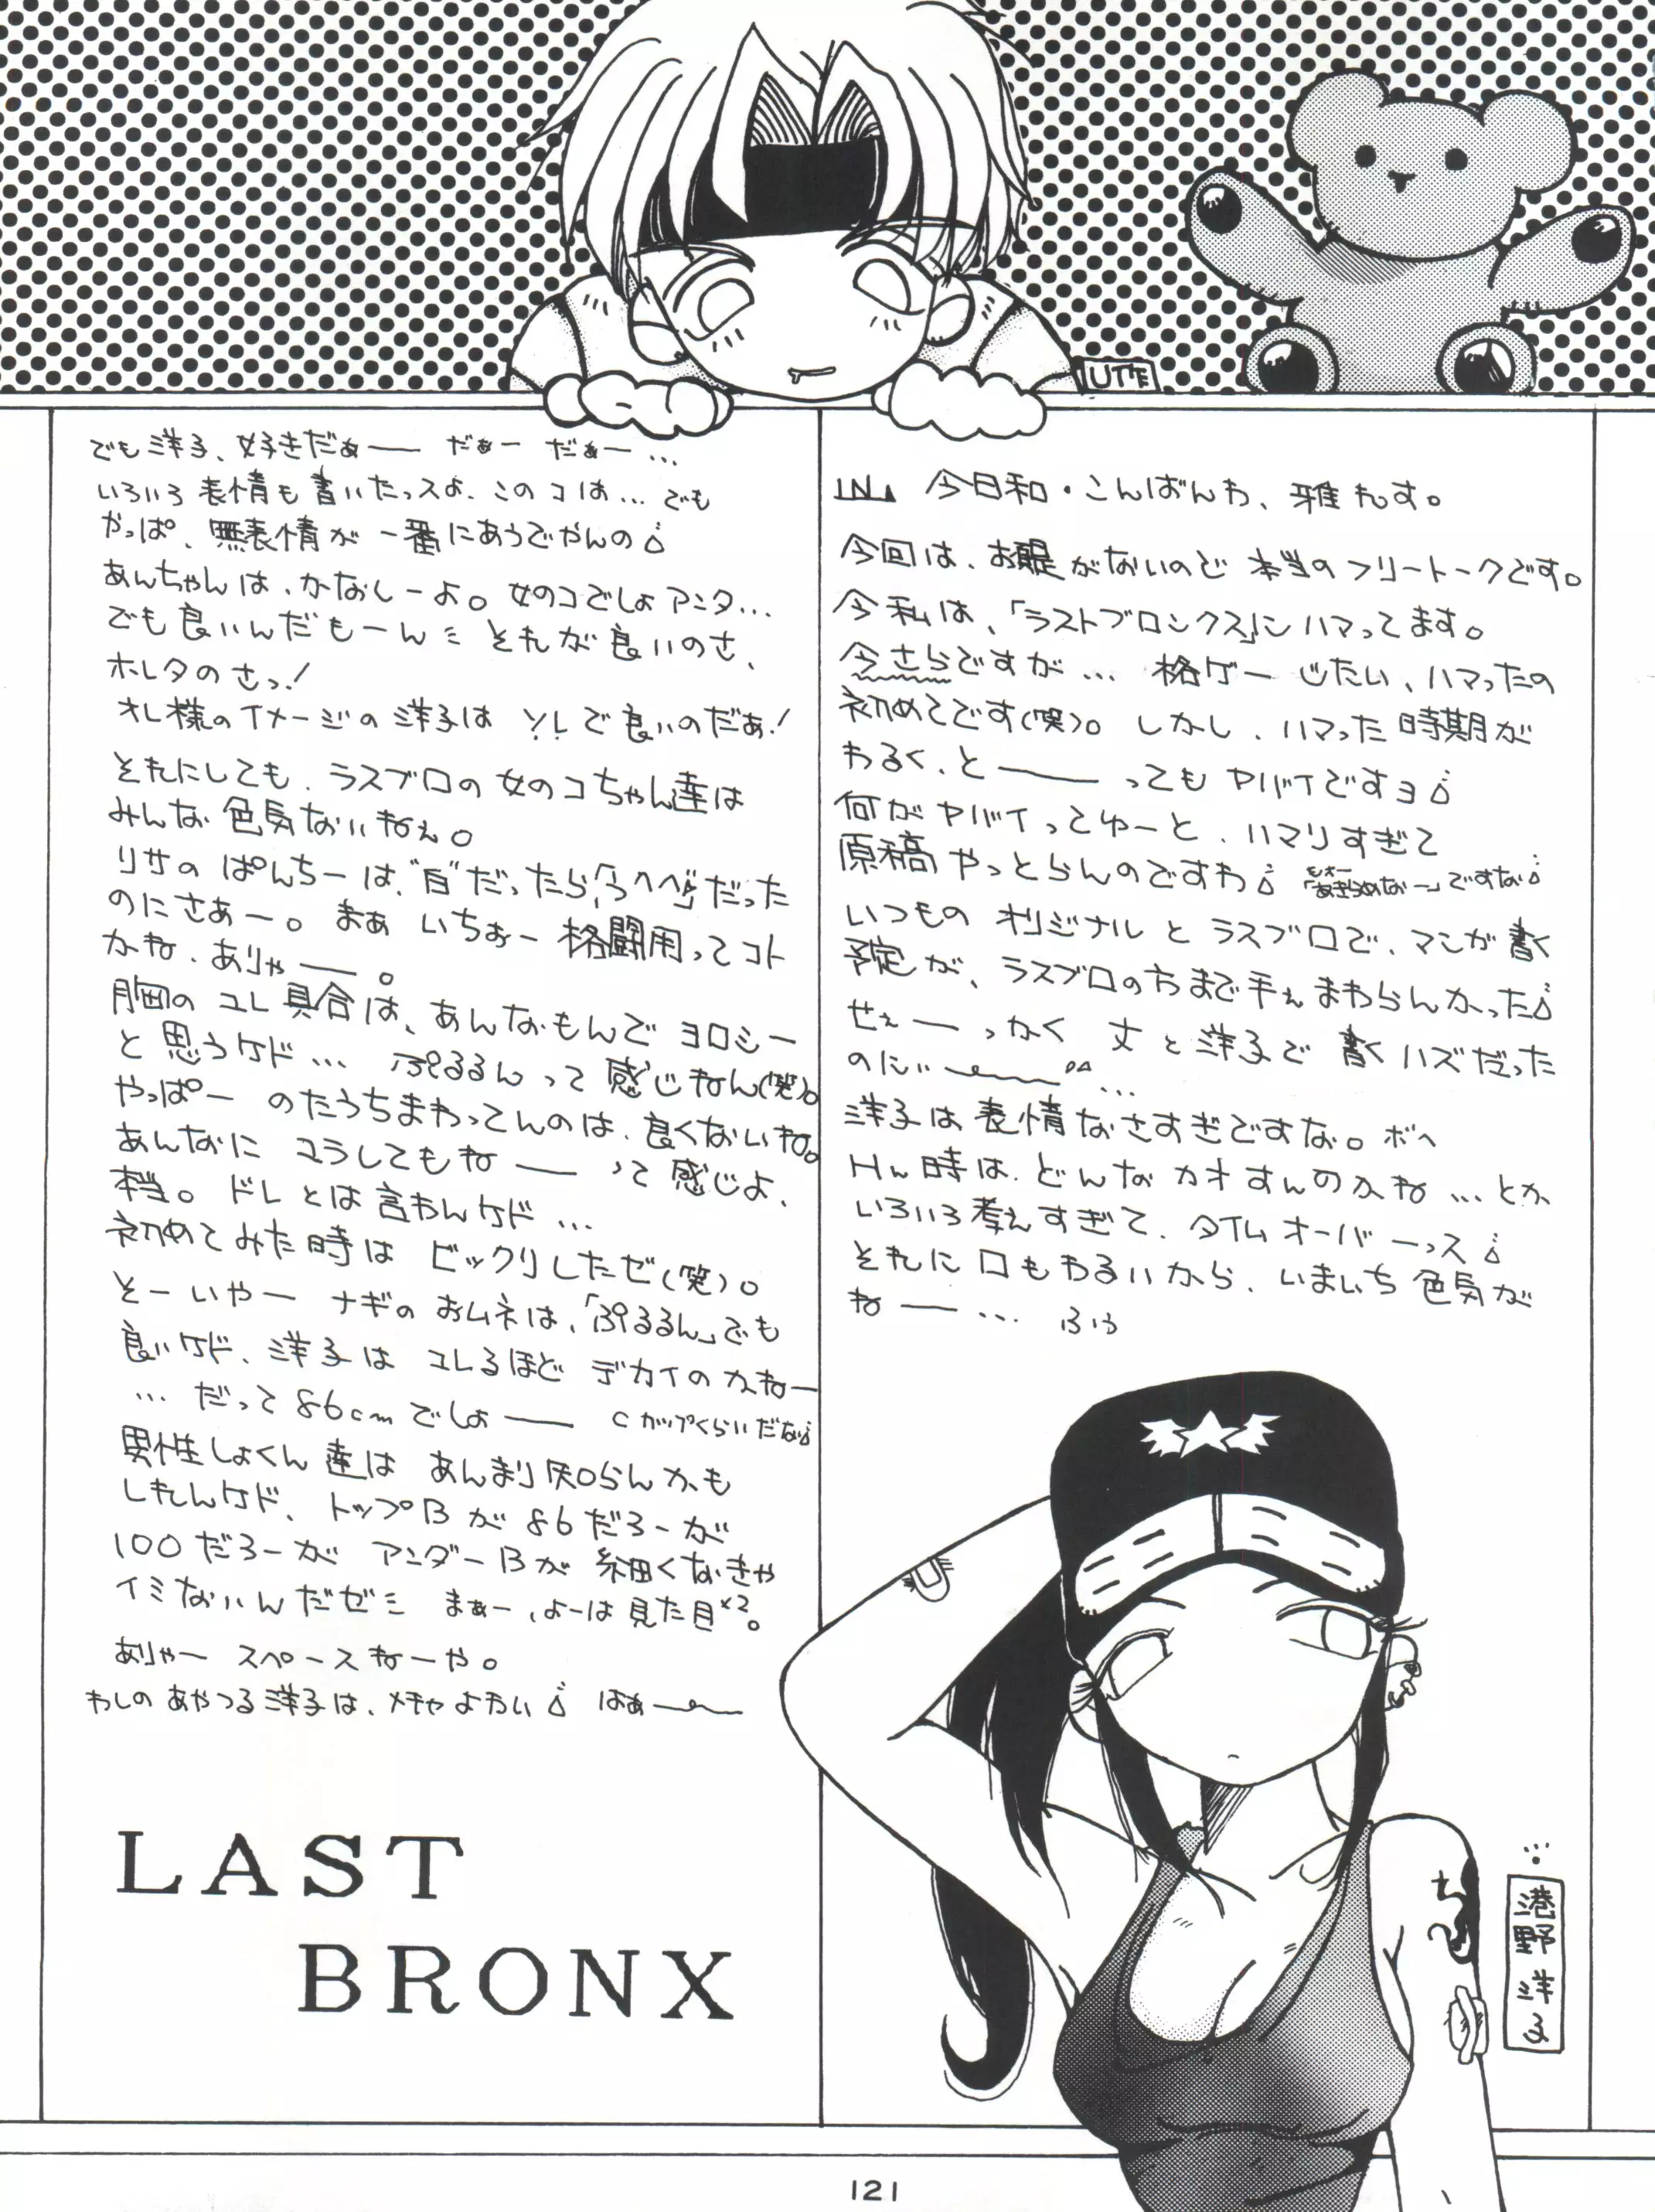 UT作
IN▲ 今日和・こんばんわ、雅れす。
今回は、お題がないので 本当のフリートークです。
今私は、「ラストブロンクス」に ハマってます。
今さらですが… 格ゲーじたい、ハマったの
初めてです(笑)。しかし、ハマった時期が
わるく、と――っても ヤバイですヨ
何がヤバイってゆーと、ハマりすぎて
原稿やっとらんのですわ 「あきらめなー」ですな
いつもの オリジナル と ラスブロで、マンガ書く
予定が、ラスブロの方まで手ぇまわらんかった
せぇ――っかく 丈と洋子で 書くハズだった
のにぃ…
洋子は表情なさすぎですな。ボへ
Hん時は、どんなカオすんのかね…とか
いろいろ考えすぎて、タイムオーバーっス
それに口もわるいから、いまいち色気が
ねー―… ふう
でも洋子、好きだぁ―― だぁー だぁー…
いろいろ表情も書いたっスよ、このコは…でも
やっぱ、無表情が一番にあうでやんの
あんちゃんは、かなしーよ。女のコでしょアンタ…
でも良いんだもーん それが良いのさ、
ホレタのさっ!
オレ様のイメージの洋子は ソレで良いのだぁ!
それにしても、ラスブロの女のコちゃん達は
みんな色気ないねぇ。
リサの ぱんちーは、"白"だったら、だった
のにさぁー。まぁ いちおー格闘用ってコト
かね、ありゃ――。
胸のユレ具合は、あんなもんでヨロシー
と思うケド… ぷるるんって感じねん(笑)。
やっぱー のたうちまわってんのは、良くないね。
あんなに ユラしてもねー―って感じよ、
本当。ドレとは言わんケド…
初めてみた時は ビックリしたゼ(笑)。
そーいやー ナギのおムネは、「ぷるるん」でも
良いケド、洋子は ユレるほど デカイのかねー
…だって86cmでしょ―― Cカップくらいだな
男性しょくん達は あんまり知らんかも
しれんケド、トップBが86だろーが
100だろーが アンダーBが 細くなきゃ
イミないんだゼ まぁー、よーは見た目×2。
ありゃー スペースねーや。
わしのあやつる洋子は、メチャよわい はぁ――
LAST
BRONX
港野洋子
121